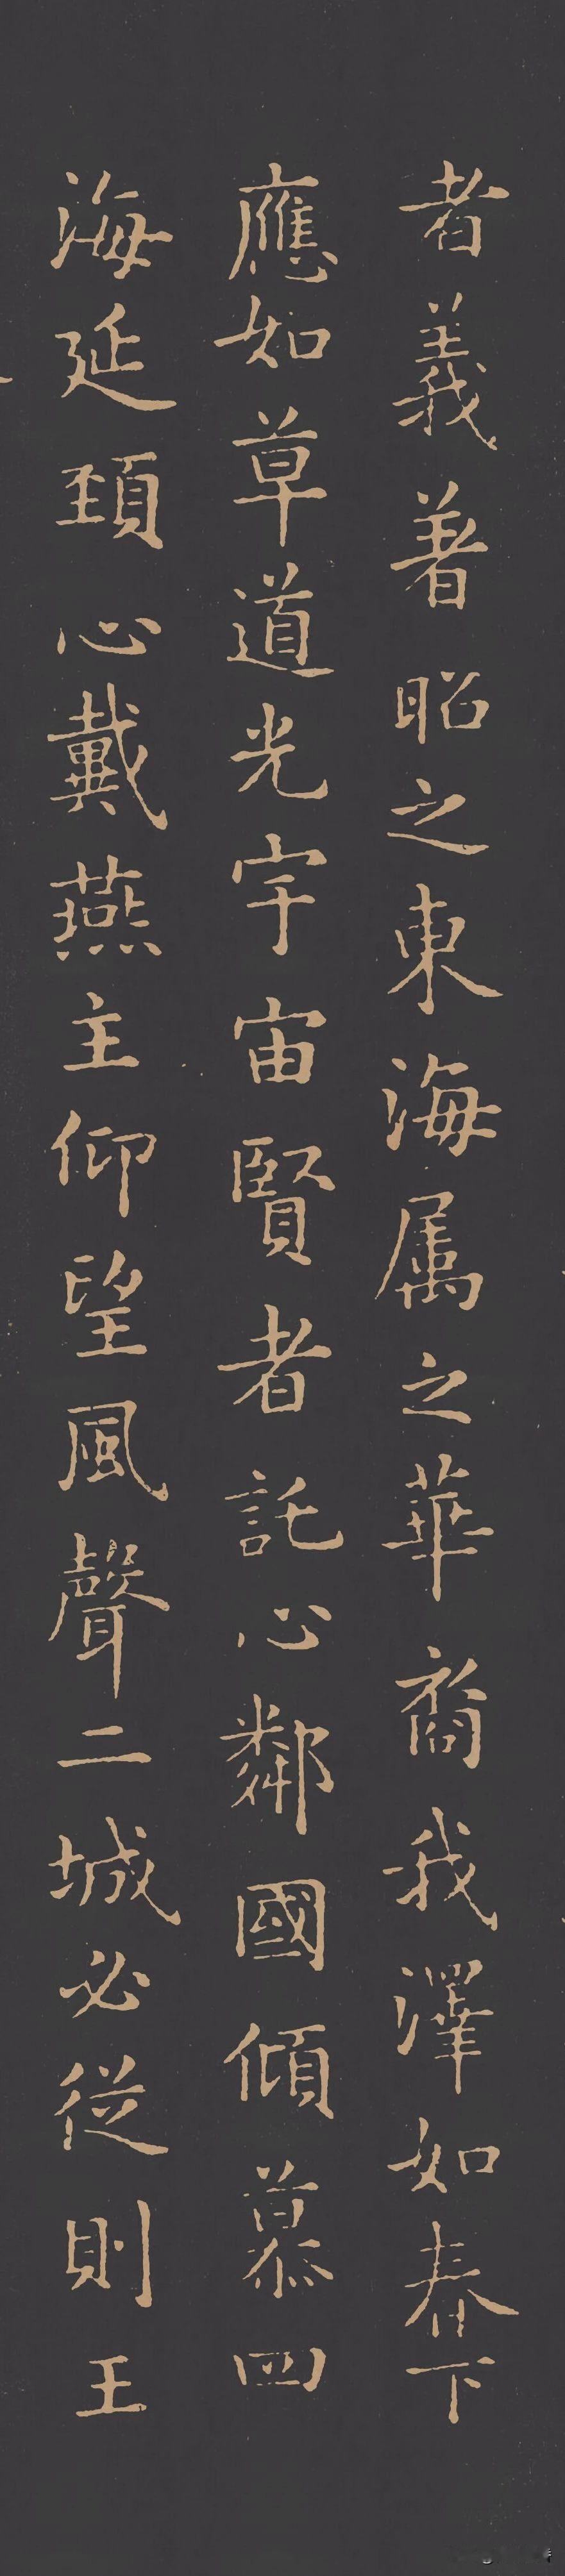 者義著昭之東海属之華裔我澤如春下
應如草道光宇宙賢者託心鄰國傾慕四
海延頚心戴燕主仰望風聲二城必從則王